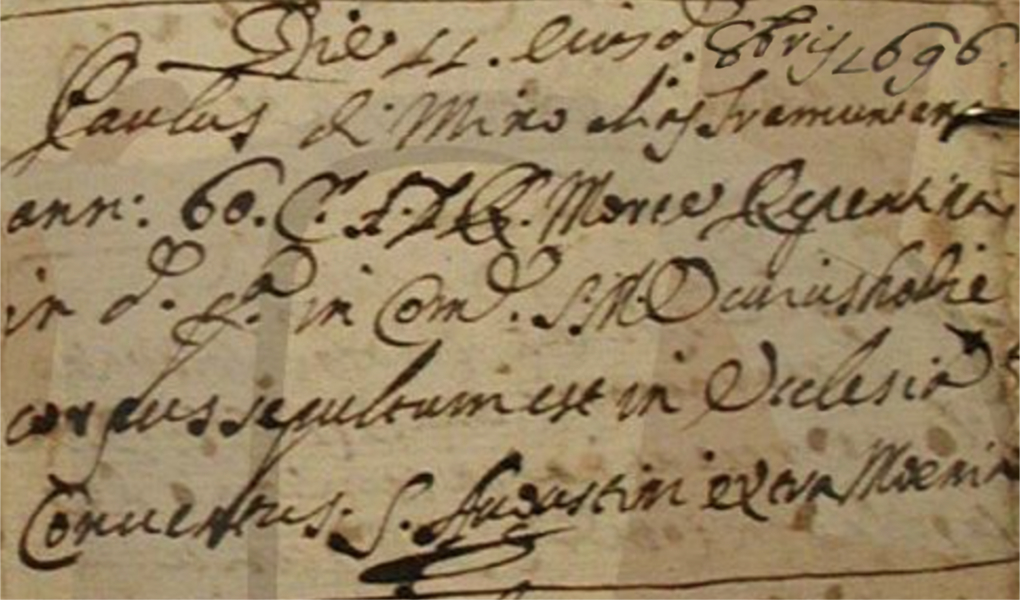 Die 11. eiusd. 8bris 1696.
Paulus di Mino
ann: 60. C. S. M. E. Morte Repentina
in d.ª p.ª in Com.e S. M. E. cuius hodie
corpus sepultum est in Ecclesia
Conventus S. Augustini extra Moenia